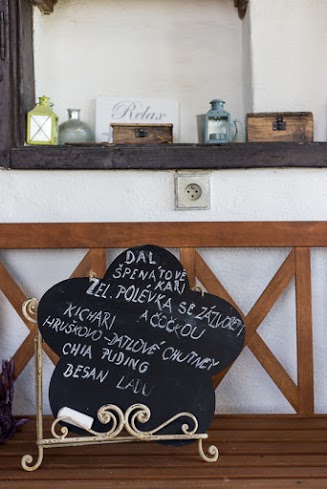 Relax
DAL
ŠPENÁTOVÉ
KARI
ZEL. POLÉVKA SE ZÁZVOREM
A ČOČKOU
KICHARI
HRUŠKOVO-DATLOVÉ CHUTNEY
CHIA PUDING
BESAN LADU